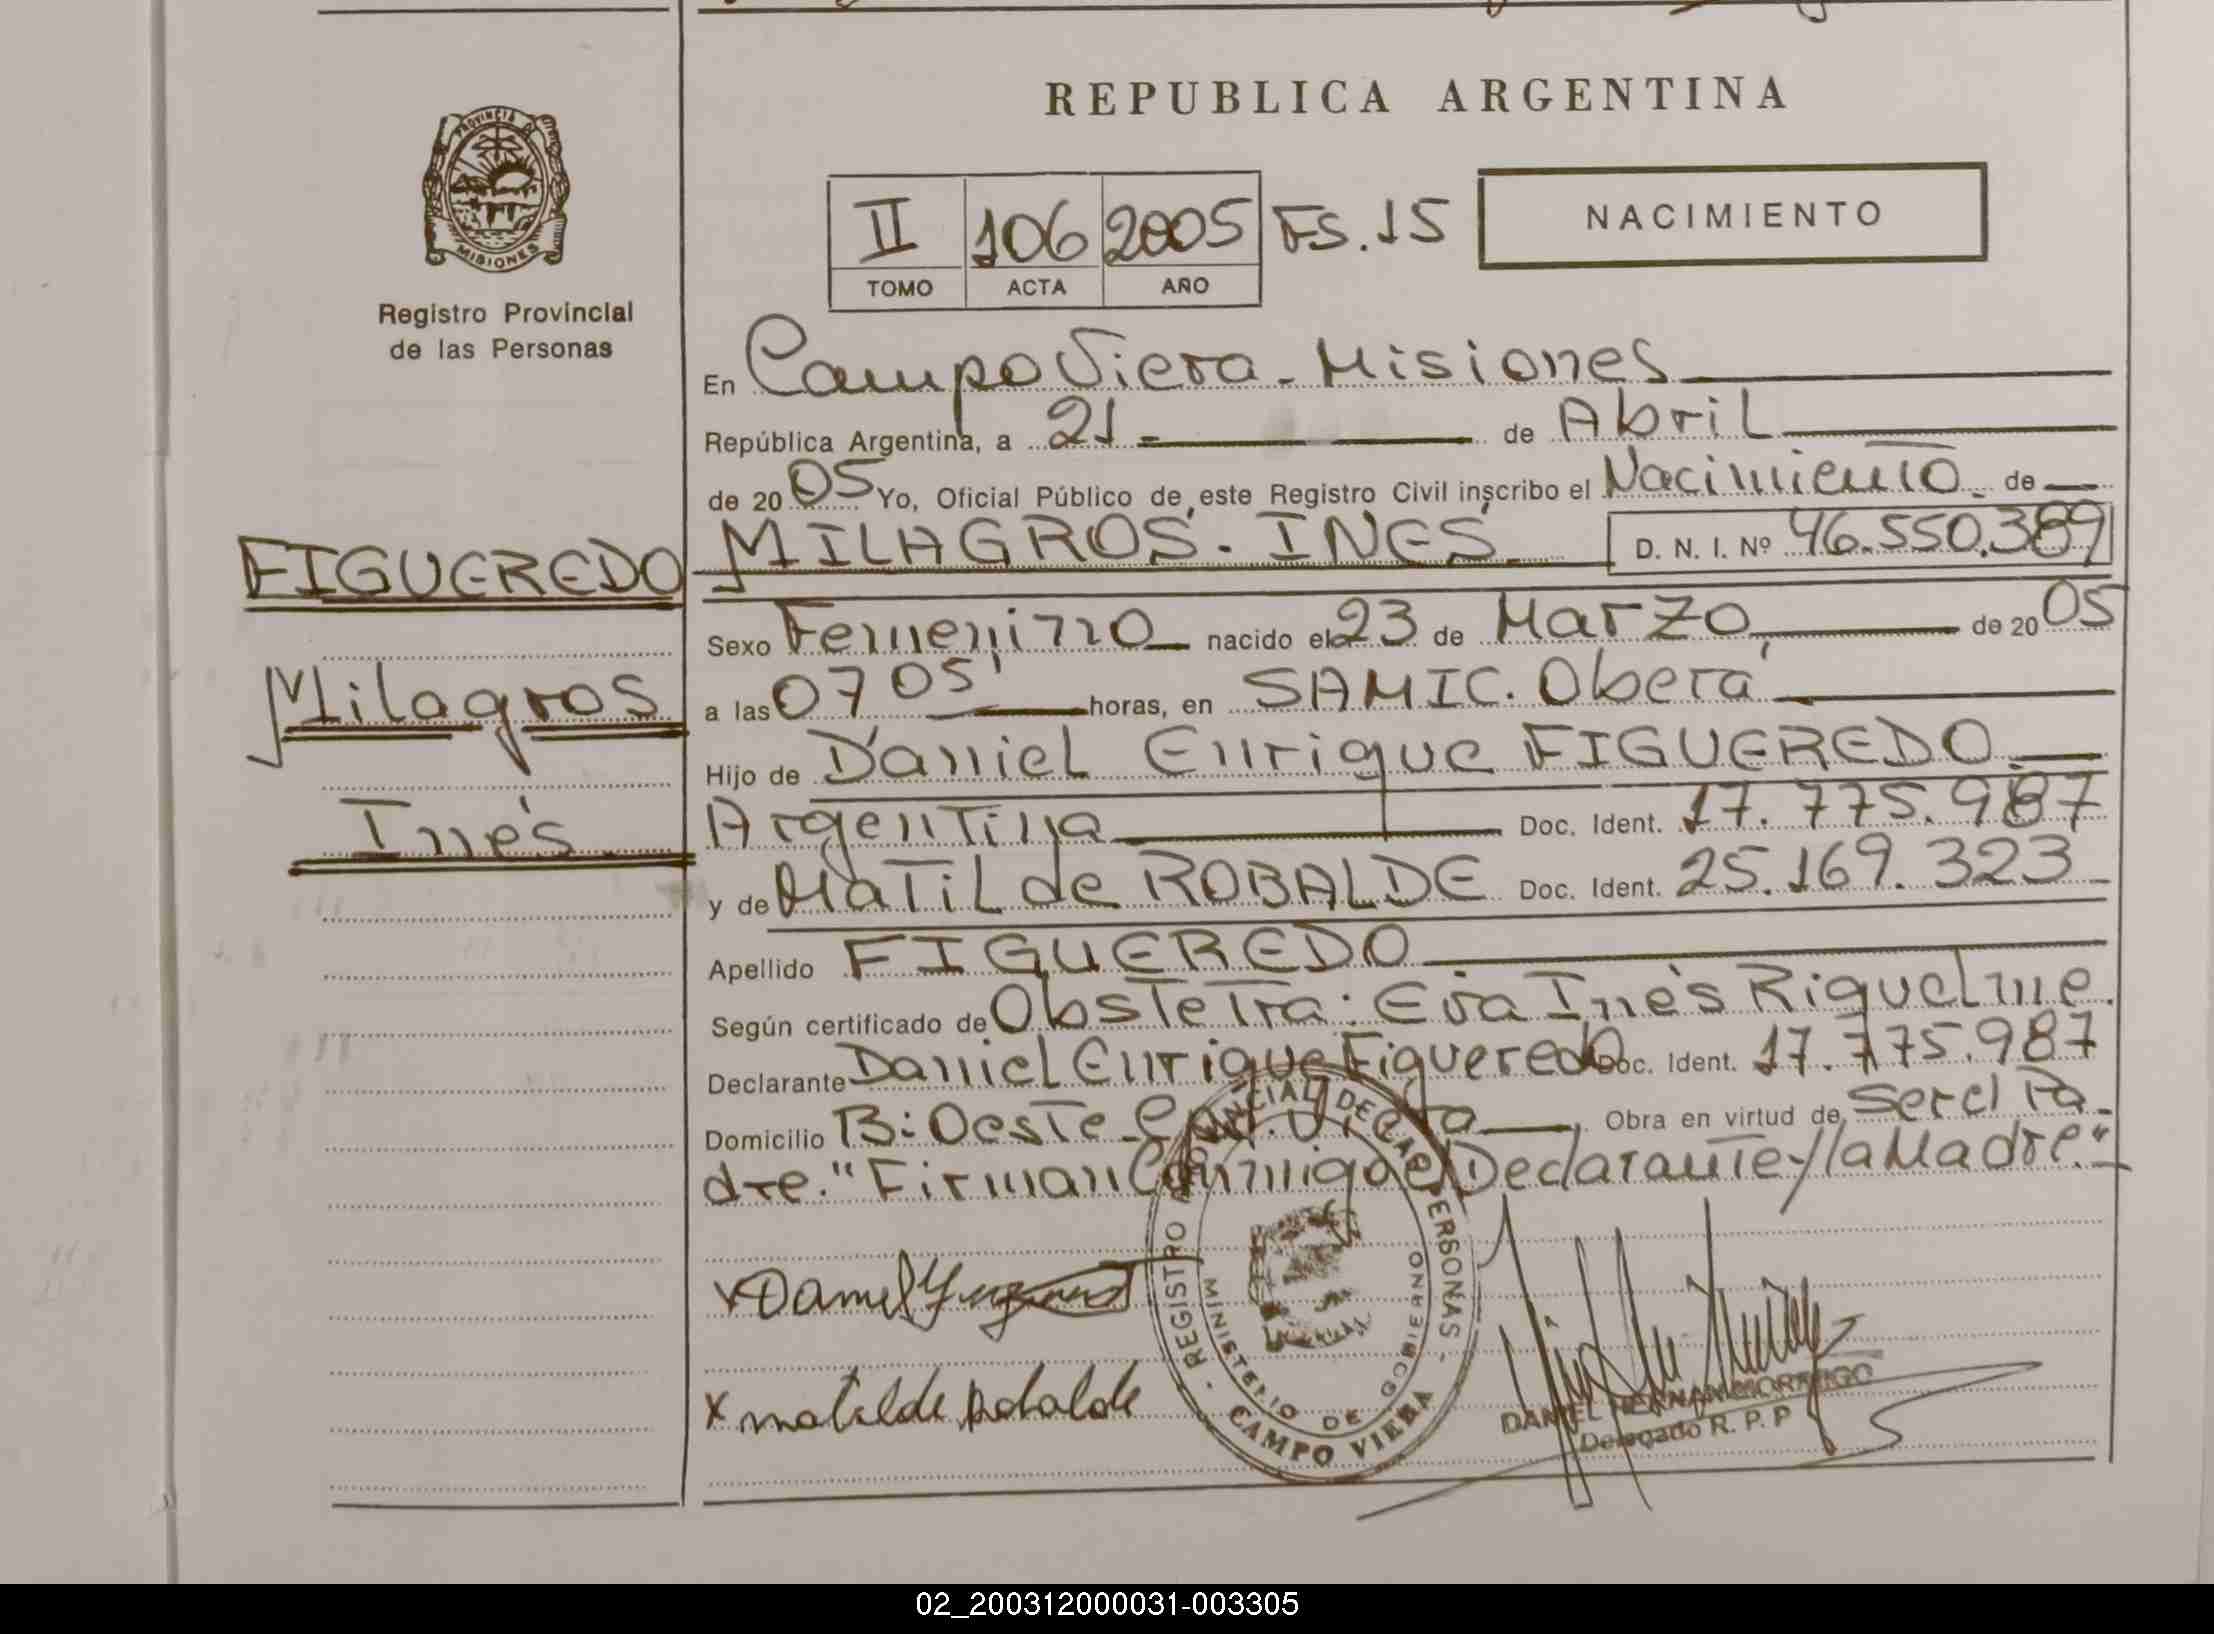 REPUBLICA ARGENTINA
PROVINCIA D
MISIONES
Registro Provincial
de las Personas
II 106 2005 FS. 15
TOMO ACTA AÑO
NACIMIENTO
En Campo Viera - Misiones
República Argentina, a 21 - de Abril
de 20 05 Yo, Oficial Público de este Registro Civil inscribo el Nacimiento. de
FIGUEREDO
MILAGROS. INÉS D. N. I. Nº 46.550.389
Sexo Femenino nacido el 23 de Marzo, de 20 05
Milagros
a las 07 05' horas, en SAMIC. Oberá
Hijo de Daniel Enrique FIGUEREDO
Inés
Argentina Doc. Ident. 17.775.987
y de Matilde ROBALDE Doc. Ident. 25.169.323
Apellido FIGUEREDO
Según certificado de Obstetra: Eva Inés Riquelme.
Declarante Daniel Enrique Figueredo Doc. Ident. 17.775.987
Domicilio B: Oeste C. Viera Obra en virtud de ser el Pa-
dre. "Firman Conmigo el Declarante y la Madre."
x Daniel
x matilde Robalde
REGISTRO PROVINCIAL DE LAS PERSONAS -
MINISTERIO DE GOBIERNO
CAMPO VIERA
DANIEL HERNAN MORINIGO
Delegado R. P. P
02_200312000031-003305